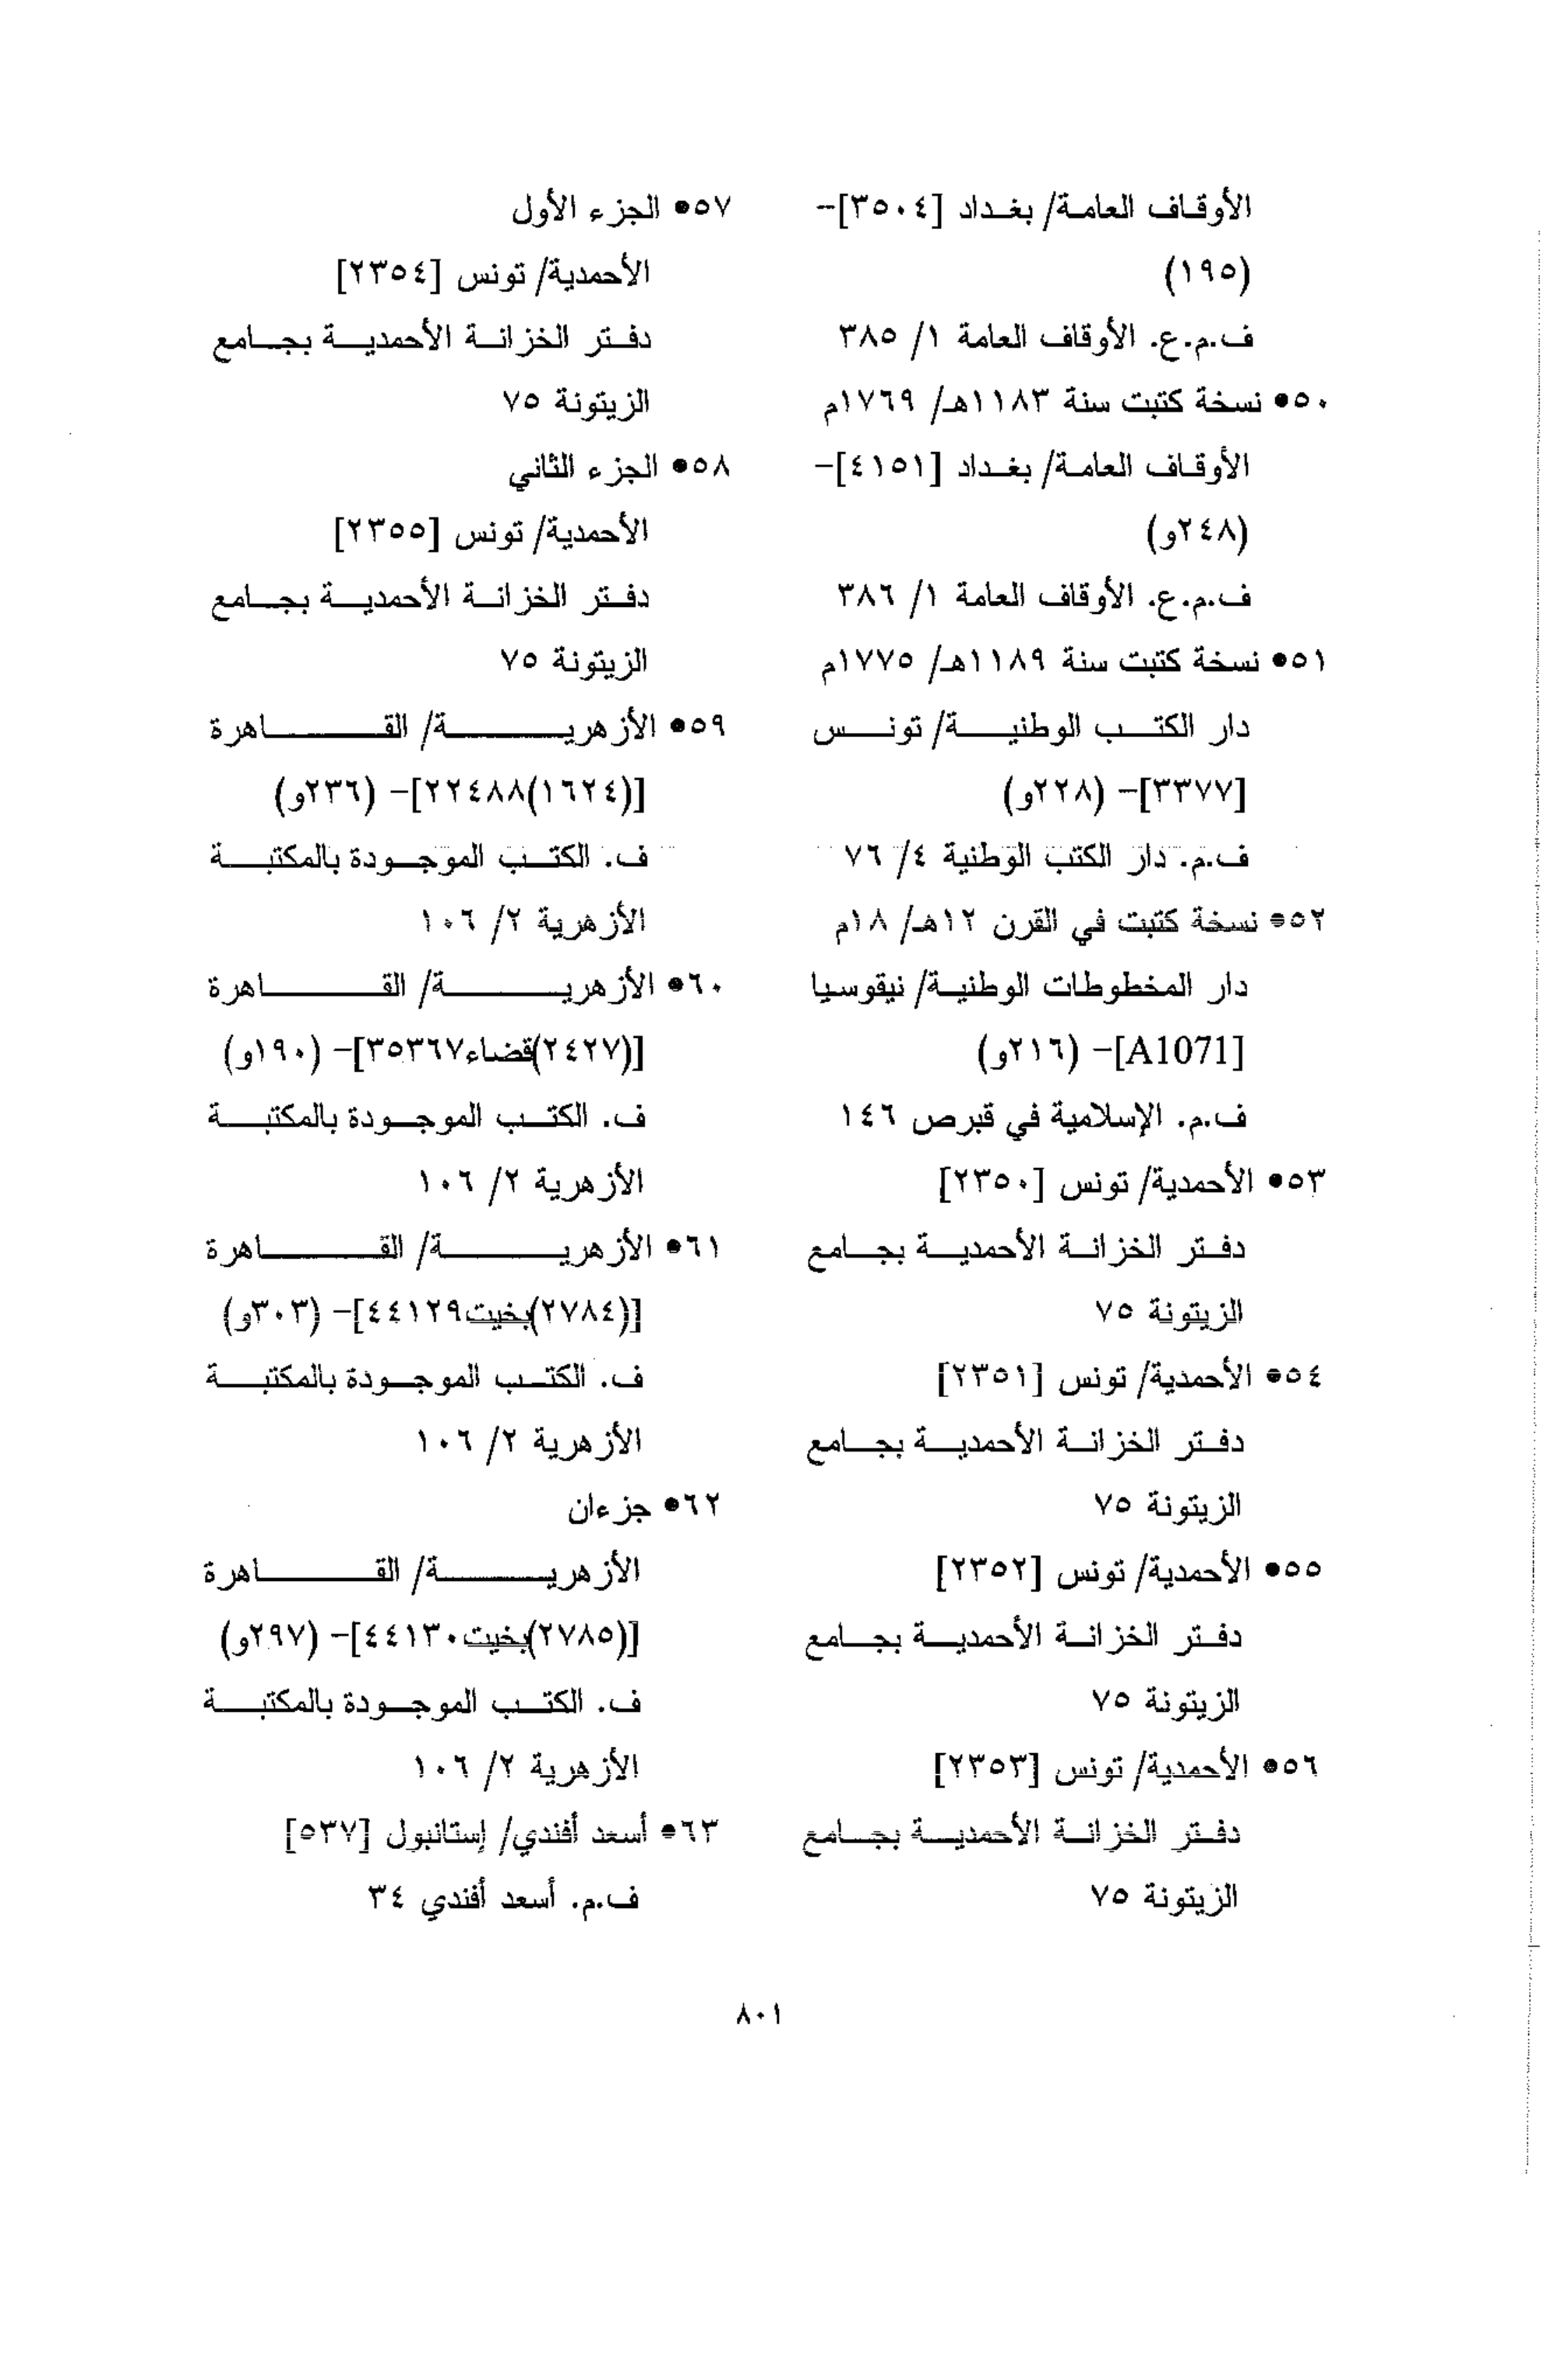 الأوقاف العامة/ بغداد [٣٥٠٤]-
(١٩٥)
ف.م.ع. الأوقاف العامة ١/ ٣٨٥
٥٠• نسخة كتبت سنة ١١٨٣هـ/ ١٧٦٩م
الأوقاف العامة/ بغداد [٤١٥١]-
(٢٤٨و)
ف.م.ع. الأوقاف العامة ١/ ٣٨٦
٥١• نسخة كتبت سنة ١١٨٩هـ/ ١٧٧٥م
دار الكتب الوطنية/ تونس
[٣٣٧٧]- (٢٢٨و)
ف.م. دار الكتب الوطنية ٤/ ٧٦
٥٢• نسخة كتبت في القرن ١٢هـ/ ١٨م
دار المخطوطات الوطنية/ نيقوسيا
[A1071]- (٢١٦و)
ف.م. الإسلامية في قبرص ١٤٦
٥٣• الأحمدية/ تونس [٢٣٥٠]
دفتر الخزانة الأحمدية بجامع
الزيتونة ٧٥
٥٤• الأحمدية/ تونس [٢٣٥١]
دفتر الخزانة الأحمدية بجامع
الزيتونة ٧٥
٥٥• الأحمدية/ تونس [٢٣٥٢]
دفتر الخزانة الأحمدية بجامع
الزيتونة ٧٥
٥٦• الأحمدية/ تونس [٢٣٥٣]
دفتر الخزانة الأحمدية بجامع
الزيتونة ٧٥
٥٧• الجزء الأول
الأحمدية/ تونس [٢٣٥٤]
دفتر الخزانة الأحمدية بجامع
الزيتونة ٧٥
٥٨• الجزء الثاني
الأحمدية/ تونس [٢٣٥٥]
دفتر الخزانة الأحمدية بجامع
الزيتونة ٧٥
٥٩• الأزهرية/ القاهرة
[(١٦٢٤)٢٢٤٨٨]- (٢٣٦و)
ف. الكتب الموجودة بالمكتبة
الأزهرية ٢/ ١٠٦
٦٠• الأزهرية/ القاهرة
[(٢٤٢٧)قضاء٣٥٣٦٧]- (١٩٠و)
ف. الكتب الموجودة بالمكتبة
الأزهرية ٢/ ١٠٦
٦١• الأزهرية/ القاهرة
[(٢٧٨٤)بخيت٤٤١٢٩]- (٣٠٣و)
ف. الكتب الموجودة بالمكتبة
الأزهرية ٢/ ١٠٦
٦٢• جزءان
الأزهرية/ القاهرة
[(٢٧٨٥)بخيت٤٤١٣٠]- (٢٩٧و)
ف. الكتب الموجودة بالمكتبة
الأزهرية ٢/ ١٠٦
٦٣• أسعد أفندي/ إستانبول [٥٣٧]
ف.م. أسعد أفندي ٣٤
٨٠١